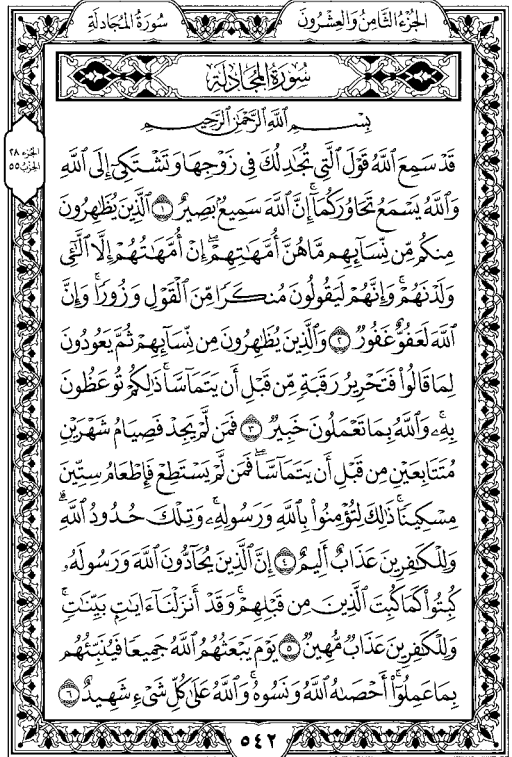 الجُزْءُ الثَّامِنُ وَالعِشْرُونَ
سُورَةُ المُجَادَلَةِ
سُورَةُ المُجَادَلَةِ
الجزء ٢٨
الحزب ٥٥
بِسْمِ ٱللَّهِ ٱلرَّحْمَٰنِ ٱلرَّحِيمِ
قَدْ سَمِعَ ٱللَّهُ قَوْلَ ٱلَّتِي تُجَٰدِلُكَ فِي زَوْجِهَا وَتَشْتَكِيٓ إِلَى ٱللَّهِ
وَٱللَّهُ يَسْمَعُ تَحَاوُرَكُمَآۚ إِنَّ ٱللَّهَ سَمِيعُۢ بَصِيرٌ ١ ٱلَّذِينَ يُظَٰهِرُونَ
مِنكُم مِّن نِّسَآئِهِم مَّا هُنَّ أُمَّهَٰتِهِمْۖ إِنْ أُمَّهَٰتُهُمْ إِلَّا ٱلَّٰٓـِٔي
وَلَدْنَهُمْۚ وَإِنَّهُمْ لَيَقُولُونَ مُنكَرًا مِّنَ ٱلْقَوْلِ وَزُورًاۚ وَإِنَّ
ٱللَّهَ لَعَفُوٌّ غَفُورٌ ٢ وَٱلَّذِينَ يُظَٰهِرُونَ مِن نِّسَآئِهِمْ ثُمَّ يَعُودُونَ
لِمَا قَالُوا۟ فَتَحْرِيرُ رَقَبَةٍ مِّن قَبْلِ أَن يَتَمَآسَّاۚ ذَٰلِكُمْ تُوعَظُونَ
بِهِۦۚ وَٱللَّهُ بِمَا تَعْمَلُونَ خَبِيرٌ ٣ فَمَن لَّمْ يَجِدْ فَصِيَامُ شَهْرَيْنِ
مُتَتَابِعَيْنِ مِن قَبْلِ أَن يَتَمَآسَّاۖ فَمَن لَّمْ يَسْتَطِعْ فَإِطْعَامُ سِتِّينَ
مِسْكِينًاۚ ذَٰلِكَ لِتُؤْمِنُوا۟ بِٱللَّهِ وَرَسُولِهِۦۚ وَتِلْكَ حُدُودُ ٱللَّهِۗ
وَلِلْكَٰفِرِينَ عَذَابٌ أَلِيمٌ ٤ إِنَّ ٱلَّذِينَ يُحَآدُّونَ ٱللَّهَ وَرَسُولَهُۥ
كُبِتُوا۟ كَمَا كُبِتَ ٱلَّذِينَ مِن قَبْلِهِمْۚ وَقَدْ أَنزَلْنَآ ءَايَٰتٍۭ بَيِّنَٰتٍۚ
وَلِلْكَٰفِرِينَ عَذَابٌ مُّهِينٌ ٥ يَوْمَ يَبْعَثُهُمُ ٱللَّهُ جَمِيعًا فَيُنَبِّئُهُم
بِمَا عَمِلُوٓا۟ۚ أَحْصَىٰهُ ٱللَّهُ وَنَسُوهُۚ وَٱللَّهُ عَلَىٰ كُلِّ شَىْءٍ شَهِيدٌ ٦
٥٤٢